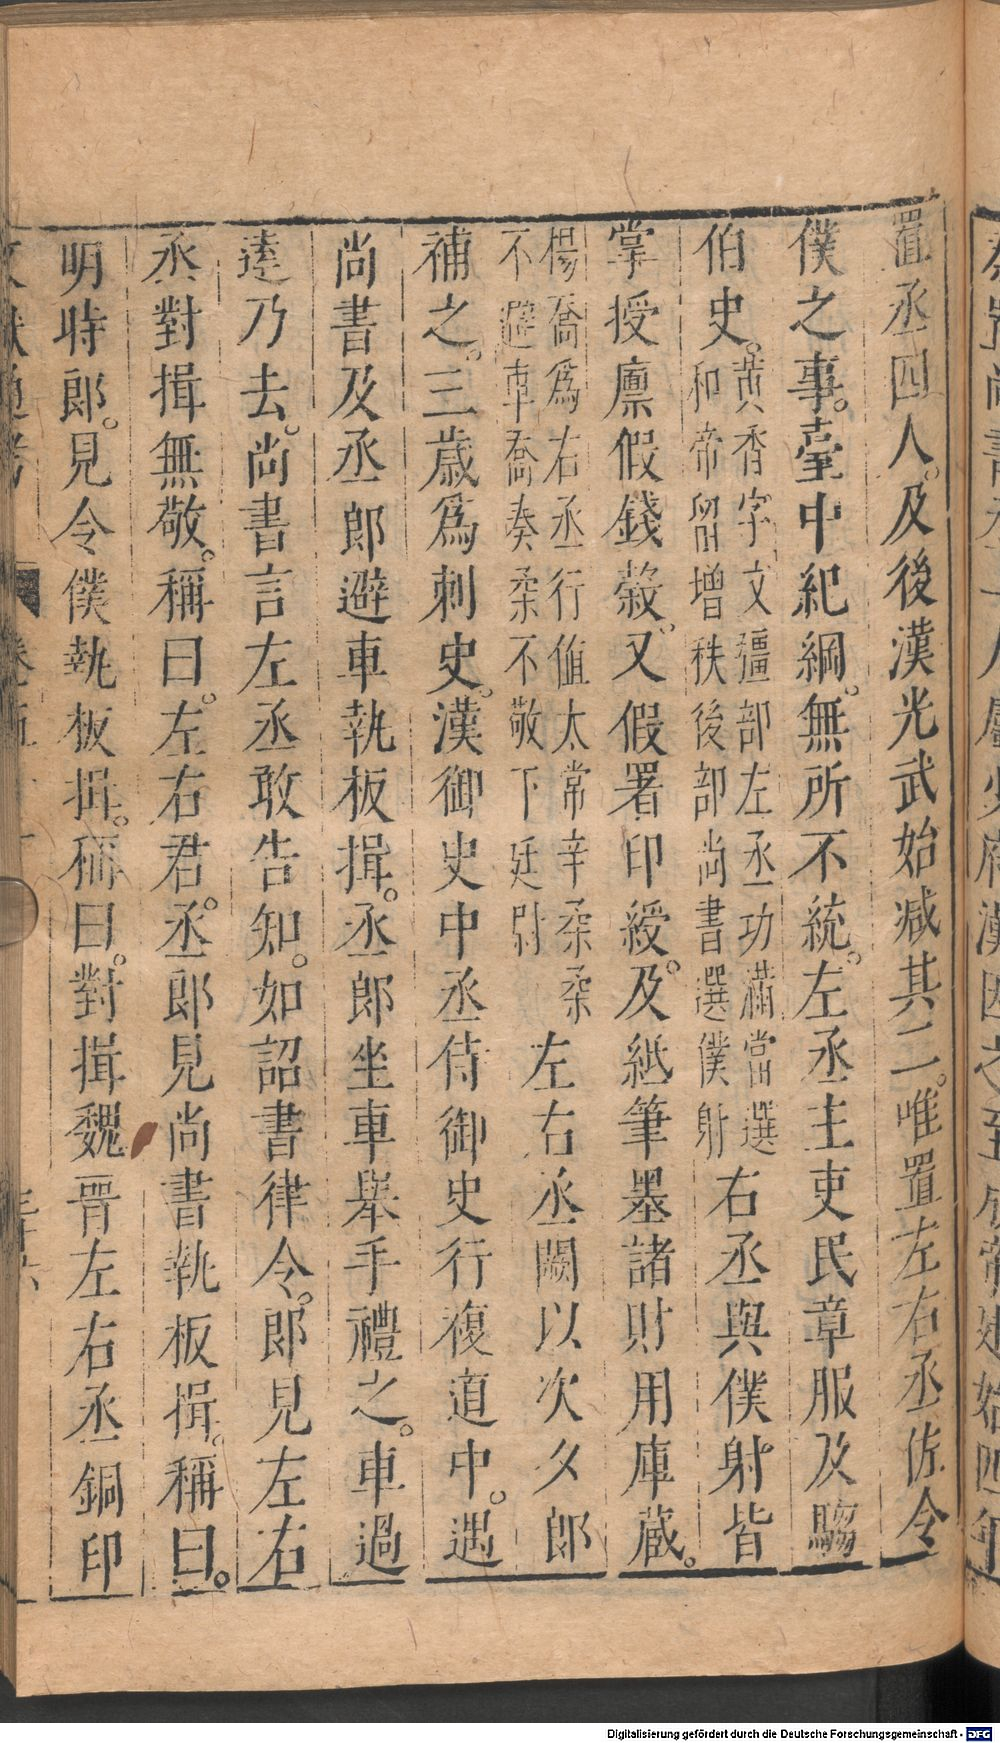 置丞四人。及後漢光武始减其二。唯置左右丞佐令
僕之事。臺中紀綱。無所不統。左丞主吏民章服及騶
伯史。
黄香字文彊部左丞功滿當選
和帝留增秩後部尚書選僕射
右丞與僕射皆
掌授廪假錢穀。又假署印綬。及紙筆墨諸財用庫蔵。
楊喬爲右丞行值太常辛柔柔
不避車喬奏柔不敬下廷尉
左右丞闕以次久郎
補之。三歲爲刺史。漢御史中丞侍御史行複道中。遇
尚書及丞郎避車執板揖。丞郎坐車舉手禮之。車過
遠乃去。尚書言左丞敢告知。如詔書律令。郎見左右
丞對揖無敬。稱曰。左右君。丞郎見尚書執板揖。稱曰。
明時郎。見令僕執板揖。稱曰。對揖魏晋左右丞銅印
文獻通考
Digitalisierung gefördert durch die Deutsche Forschungsgemeinschaft - DFG